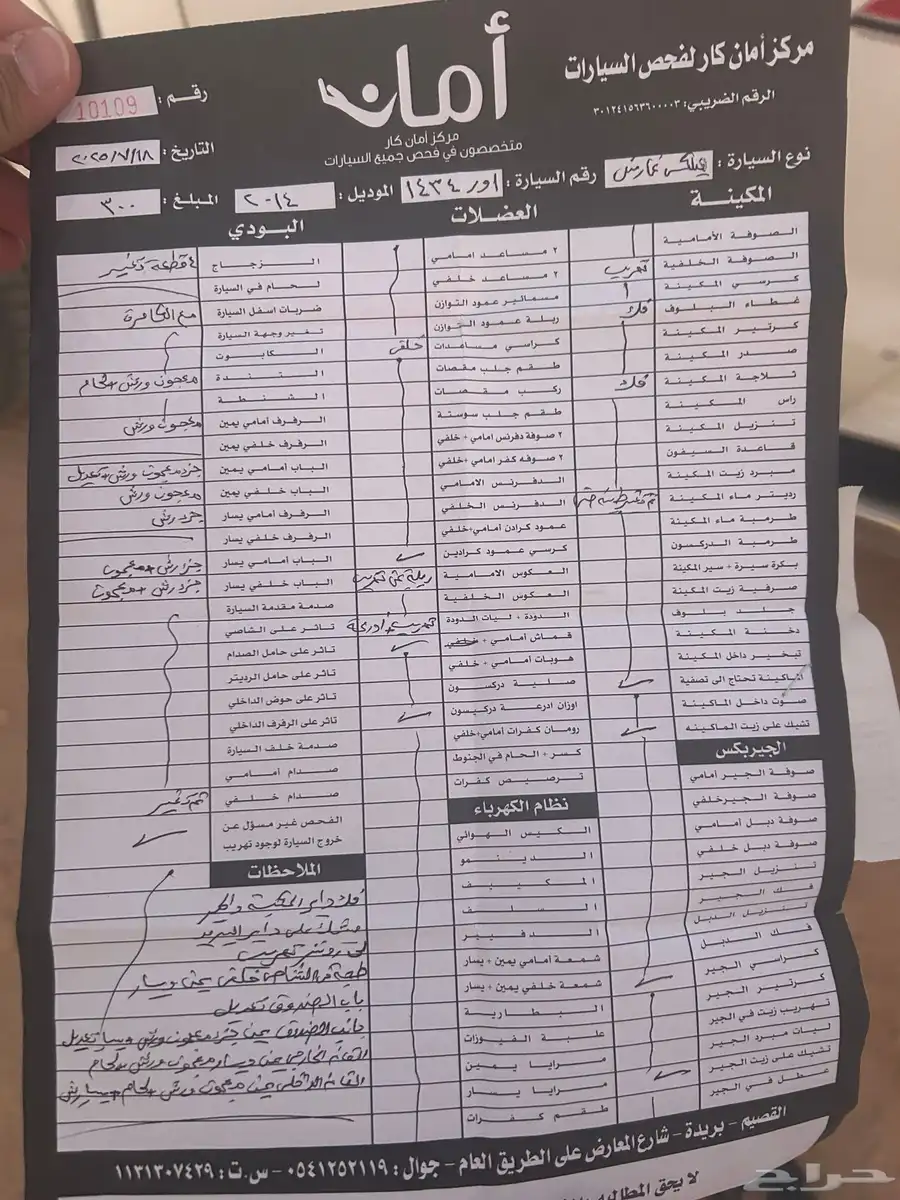 مركز أمان كار لفحص السيارات
الرقم الضريبي: ٣٠١٢٤١٥٦٣٦٠٠٠٠٣
أمان
مركز أمان كار
متخصصون في فحص جميع السيارات
رقم: 10109
التاريخ: ٢٠٢٥/٧/١٨
نوع السيارة: هيلكس غمارتين
رقم السيارة: ١٤٣٤ اور
الموديل: ٢٠١٤
المبلغ: ٣٠٠
المكينة
الصوفة الأمامية
الصوفة الخلفية تهريب
كرسي المكينة
غطاء البلوف فك
كرتير المكينة
صدر المكينة
ثلاجة المكينة فك
راس المكينة
تنزيل المكينة
قاعدة السيفون
مبرد زيت المكينة
رديتر ماء المكينة
طرمبة ماء المكينة
طرمبة الدركسون
بكرة سيرة + سير المكينة
صرفية زيت المكينة
جلد بلوف
دخنة المكينة
تبخير داخل المكينة
الماكينة تحتاج الى تصفية
صوت داخل الماكينة
تشيك على زيت الماكينه
الجيربكس
صوفة الجير أمامي
صوفة الجير خلفي
صوفة دبل أمامي
صوفة دبل خلفي
تنزيل الجير
فك الجير
تنزيل الدبل
فك الدبل
كراسي الجير
كرتير الجير
تهريب زيت في الجير
ليات مبرد الجير
تشيك على زيت الجير
عطل في الجير
العضلات
٢ مساعد امامي
٢ مساعد خلفي
مسمائير عمود التوازن
ربلة عمود التوازن
كراسي مساعدات خلفي
طقم جلب مقصات
ركب مقصات
طقم جلب سوستة
٢ صوفة دفرنس امامي + خلفي
٢ صوفه كفر امامي + خلفي
الدفرنس الامامي
الدفرنس الخلفي
عمود كرادن أمامي + خلفي
كرسي عمود كرادين
العكوس الامامية ربلة يمين تهريب
العكوس الخلفية
الدودة + ليات الدودة
قماش أمامي + خلفي
هوبات امامي + خلفي
صلية دركسون
اوزان ادرعة دركيسون
رومان كفرات امامي + خلفي
كسر + الحام في الجنوط
ترصيص كفرات
نظام الكهرباء
الكيس الهوائي
الدينمو
المكييف
السلف
الدفيير
شمعة امامي يمين + يسار
شمعة خلفي يمين + يسار
البطارية
علبة الفيوزات
مرايا يمين
مرايا يسار
طقم كفرات
البودي
الزجاج ٤ قطعه تغيير
لحام في السيارة
ضربات اسفل السيارة مع الكامرة
تغير وجهة السيارة
الكابوت
التندة معجون ورش + لحام
الشنطة
الرفرف أمامي يمين معجون ورش
الرفرف خلفي يمين
الباب أمامي يمين جزء معجون ورش + تعديل
الباب خلفي يمين معجون ورش
الرفرف أمامي يسار جزء رش
الرفرف خلفي يسار
الباب أمامي يسار جزء رش + معجون
الباب خلفي يسار جزء رش + معجون
صدمة مقدمة السيارة
تاثر على الشاصي
تاثر على حامل الصدام
تاثر على حامل الرديتر
تاثر على حوض الداخلي
تاثر على الرفرف الداخلي
صدمة خلف السيارة
صدام أمامي
صدام خلفي تم تغيير
الفحص غير مسؤل عن
خروج السيارة لوجود تهريب
الملاحظات
فك داير المكينة والجير
مشيك على داير البريد
لي روتر تهريب
طبعة في الشاصي خلفي يمين ويسار
باب الصندوق تعديل
جانب الصندوق يمين جزء معجون ورش ويسار تعديل
القائم الخارجي يمين ويسار معجون ورش + لحام
القائم الداخلي يمين معجون ورش + لحام + يسار رش
القصيم - بريدة - شارع المعارض على الطريق العام - جوال: ٠٥٤١٢٥٢١١٩ - س.ت: ١١٣١٣٠٧٤٢٩
لا يحق المطالبه
حراج